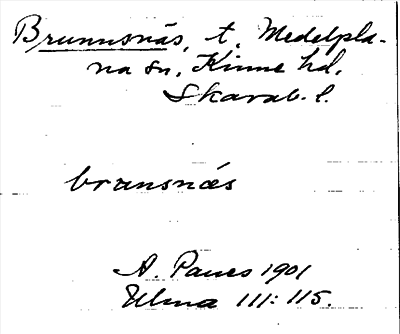 Brunnsnäs, t. Medelpla-
na sn, Kinne hd,
Skarab. l.
brunsnæs
A. Paues 1901
Ulma 111:115.